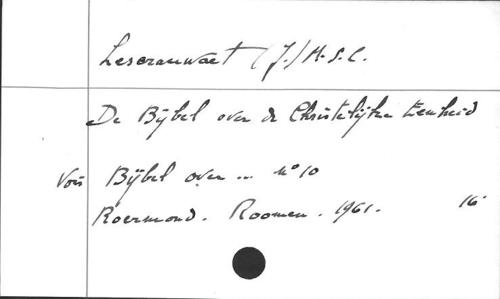 Lescrauwaet (J.) M.S.C.
De Bijbel over de Christelijke Eenheid
Voir Bijbel over ... n° 10
Roermond. Roomen. 1961. 16°